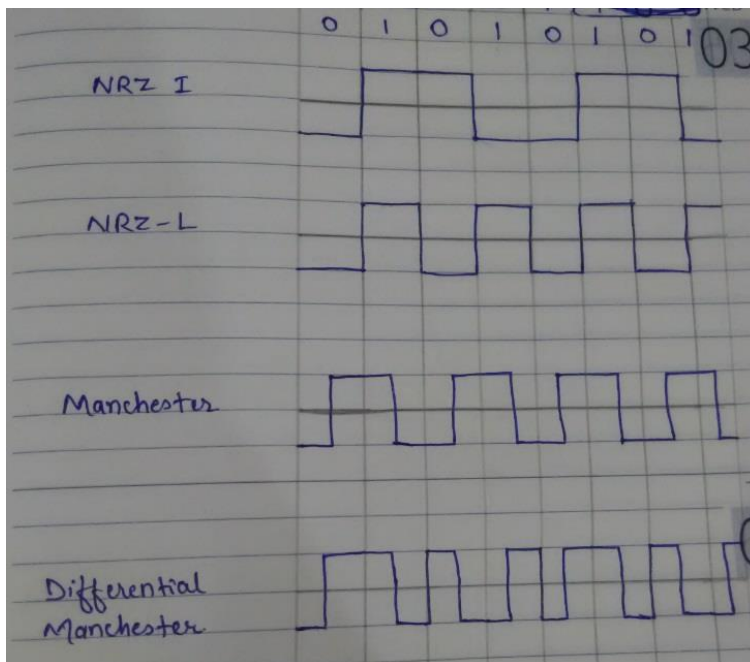 0 1 0 1 0 1 0 1
03
NRZ I
NRZ-L
Manchester
Differential
Manchester